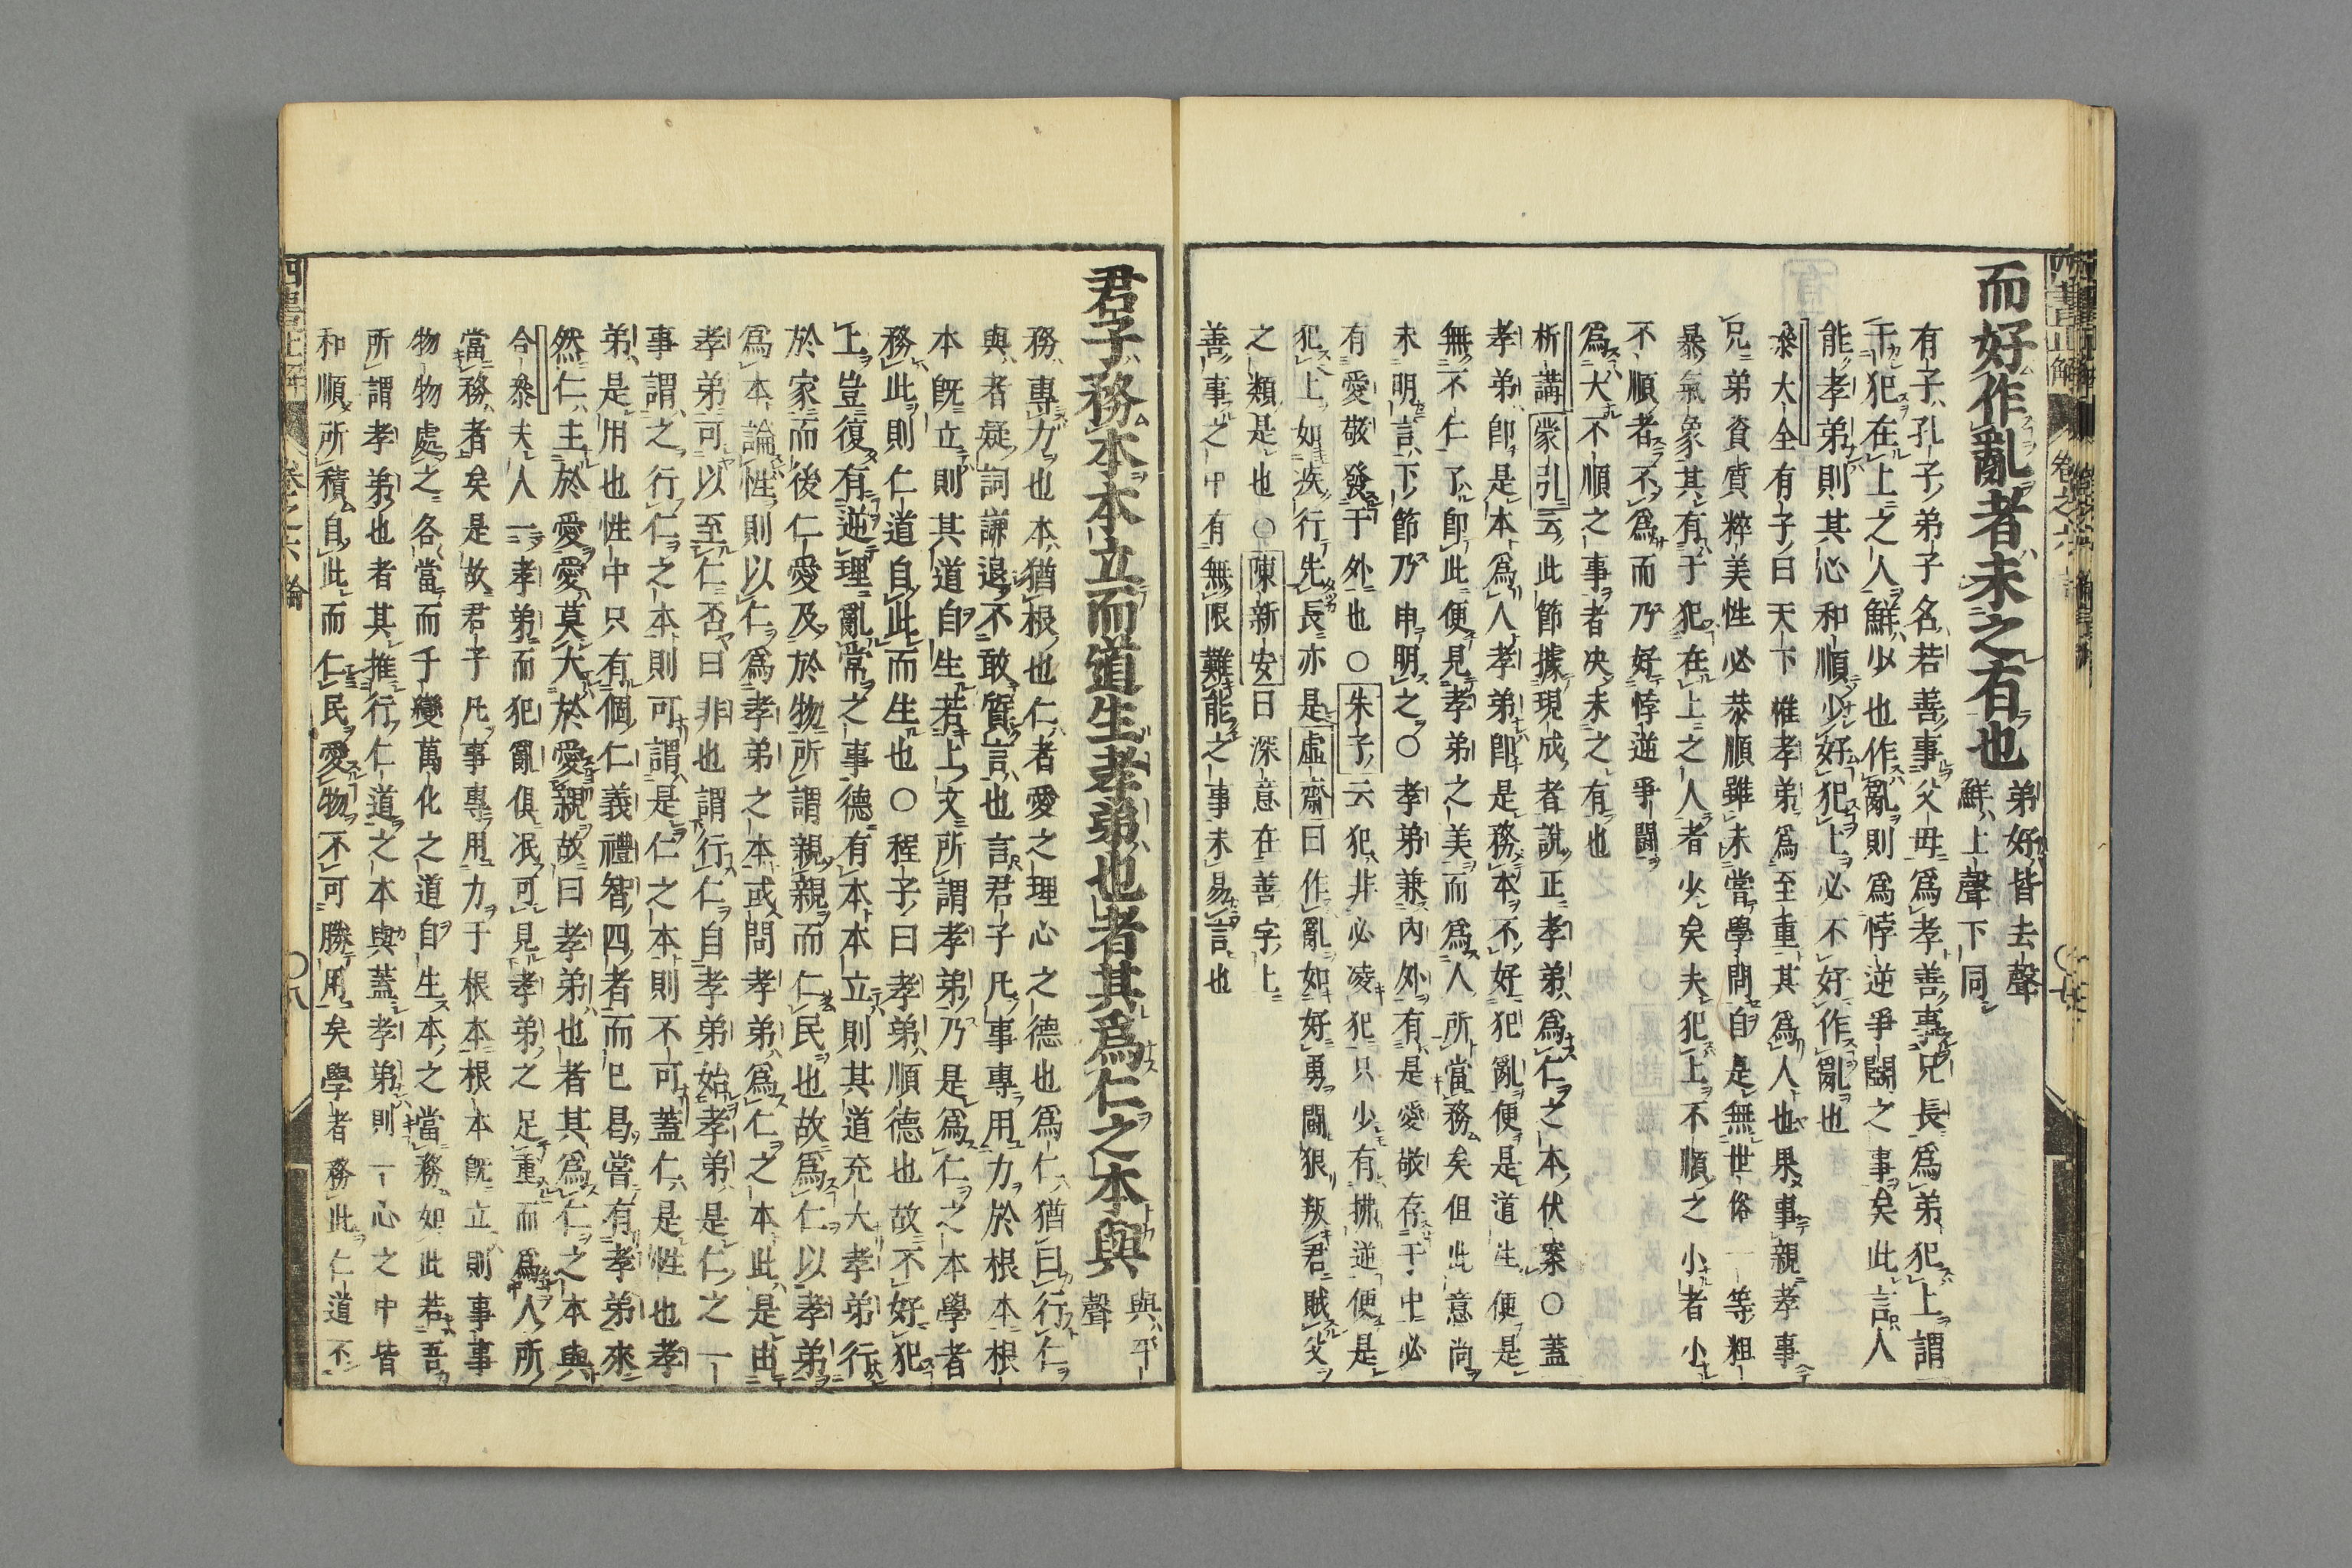 而好作亂者未之有也
弟好皆去聲
鮮上聲下同
有子孔子弟子名若善事父母爲孝善事兄長爲弟犯上謂
干犯在上之人鮮少也作亂則爲悖逆爭鬪之事矣此言人
能孝弟則其心和順少好犯上必不好作亂也
叅大全有子曰天下惟孝弟爲至重其爲人也果事親孝事
兄弟資質粹美性必恭順雖未嘗學問自是無世俗一等粗
暴氣象其有于犯在上之人者少矣夫犯上不順之小者小
不順者不爲而乃好悖逆爭鬪
爲大不順之事者决未之有也
析講蒙引云此節據現成者說正孝弟爲仁之本伏案○蓋
孝弟卽是本爲人孝弟卽是務本不好犯亂便是道生便是
無不仁了卽此便見孝弟之美而爲人所當務矣但此意尚
未明言下節乃申明之○孝弟兼內外有是愛敬存于中必
有愛敬發于外也○朱子云犯非必凌犯只少有拂逆便是
犯上如疾行先長亦是虛齋曰作亂如好勇鬪狠叛君賊父
之類是也○陳新安曰深意在善字上
善事之中有無限難能之事未易言也
君子務本本立而道生孝弟也者其爲仁之本與
與平
聲
務專力也本猶根也仁者愛之理心之德也爲仁猶曰行仁
與者疑詞謙退不敢質言也言君子凡事專用力於根本根
本旣立則其道自生若上文所謂孝弟乃是爲仁之本學者
務此則仁道自此而生也○程子曰孝弟順德也故不好犯
上豈復有逆理亂常之事德有本本立則其道充大孝弟行
於家而後仁愛及於物所謂親親而仁民也故爲仁以孝弟
爲本論性則以仁爲孝弟之本或問孝弟爲仁之本此是由
孝弟可以至仁否曰非也謂行仁自孝弟始孝弟是仁之一
事謂之行仁之本則可謂是仁之本則不可蓋仁是性也孝
弟是用也性中只有個仁義禮智四者而已曷嘗有孝弟來
然仁主於愛愛莫大於愛親故曰孝弟也者其爲仁之本與
合叅夫人一孝弟而犯亂俱泯可見孝弟之足重而爲人所
當務者矣是故君子凡事專用力于根本根本旣立則事事
物物處之各當而千變萬化之道自生本之當務如此若吾
所謂孝弟也者其推行仁道之本與蓋孝弟則一心之中皆
和順所積自此而仁民愛物不可勝用矣學者務此仁道不
四書正解
卷之六
論
○八